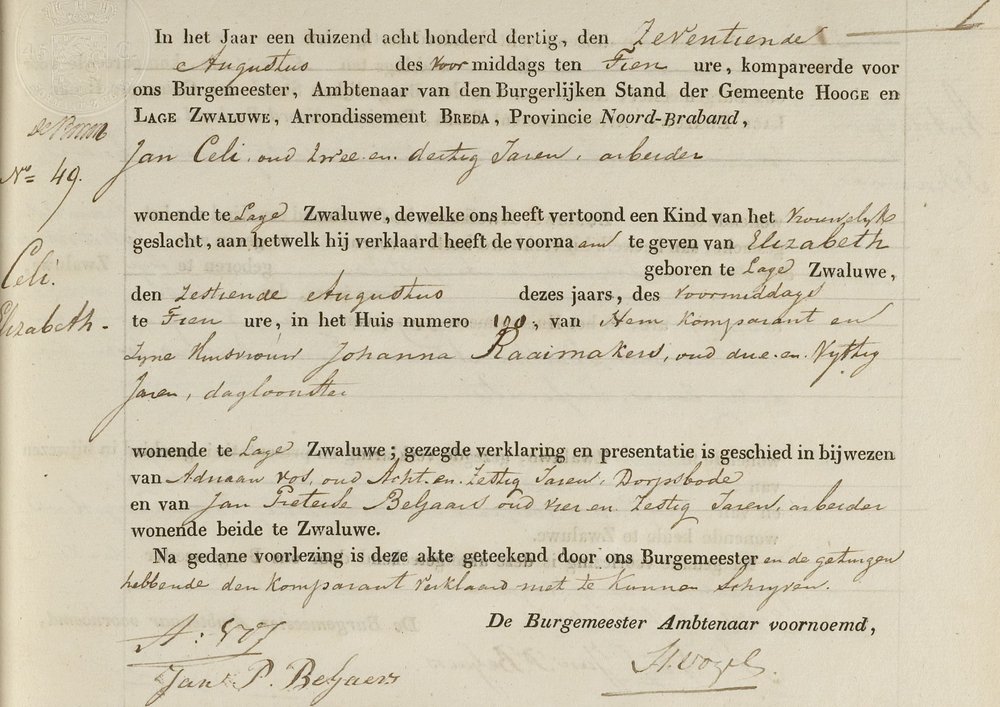 In het Jaar een duizend acht honderd dertig, den Zeventiende
Augustus des Voormiddags ten Tien ure, kompareerde voor
ons Burgemeester, Ambtenaar van den Burgerlijken Stand der Gemeente HOOGE en
LAGE ZWALUWE, Arrondissement BREDA, Provincie Noord-Braband,
No 49.
Jan Celi, oud twee en dertig Jaren, arbeider
wonende te Lage Zwaluwe, dewelke ons heeft vertoond een Kind van het Vrouwelyk
geslacht, aan hetwelk hij verklaard heeft de voornaam te geven van Elizabeth
Celi.
Elizabeth.
geboren te Lage Zwaluwe,
den Zestiende Augustus dezes jaars, des Voormiddags
te Tien ure, in het Huis numero 190, van Hem Komparant en
zyne Huisvrouw Johanna Raaimakers, oud drie en Vyftig
Jaren, dagloonster
wonende te Lage Zwaluwe; gezegde verklaring en presentatie is geschied in bijwezen
van Adriaan Vos, oud Acht en Zestig Jaren, Dorpsbode
en van Jan Pieterse Beljaars oud vier en Zestig Jaren, arbeider
wonende beide te Zwaluwe.
Na gedane voorlezing is deze akte geteekend door ons Burgemeester en de getuigen
hebbende den Komparant verklaard niet te Kunnen Schryven.
De Burgemeester Ambtenaar voornoemd,
Jan P. Beljaers
H. Vogel